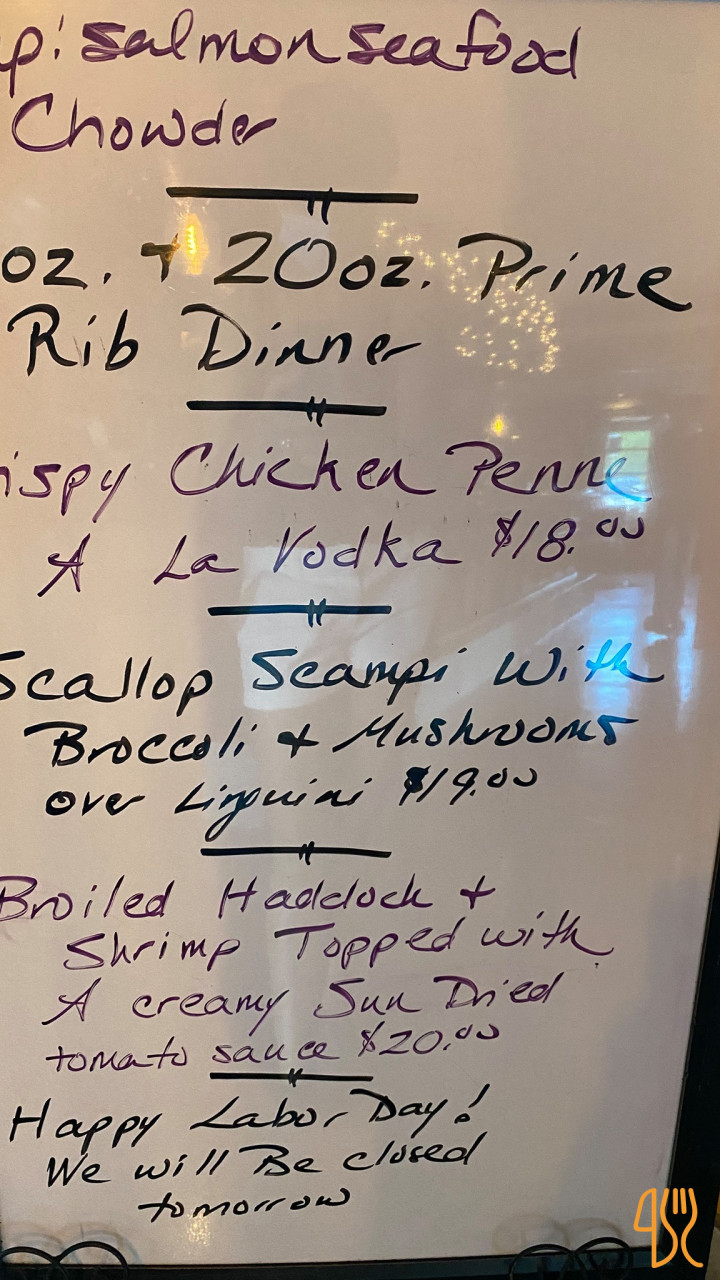 p: Salmon Seafood
Chowder
oz. + 20oz. Prime
Rib Dinner
ispy Chicken Penne
A La Vodka $18.00
Scallop Scampi With
Broccoli + Mushrooms
over Linguini $19.00
Broiled Haddock +
Shrimp Topped with
A creamy Sun Dried
tomato sauce $20.00
Happy Labor Day!
We will Be closed
tomorrow